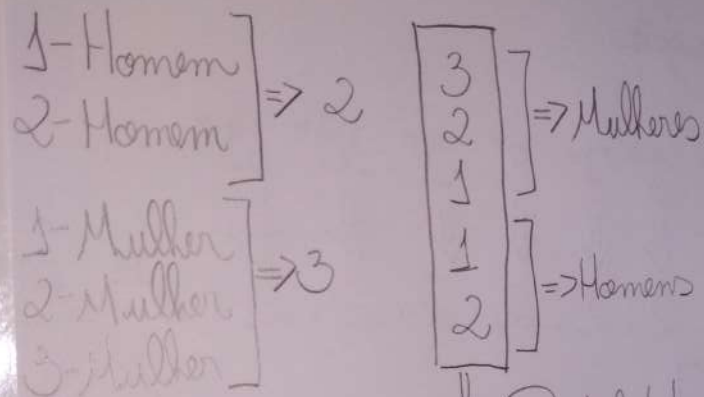 1-Homem
2-Homem
=> 2
1-Mulher
2-Mulher
3-Mulher
=> 3
3
2
1
=> Mulheres
1
2
=> Homens